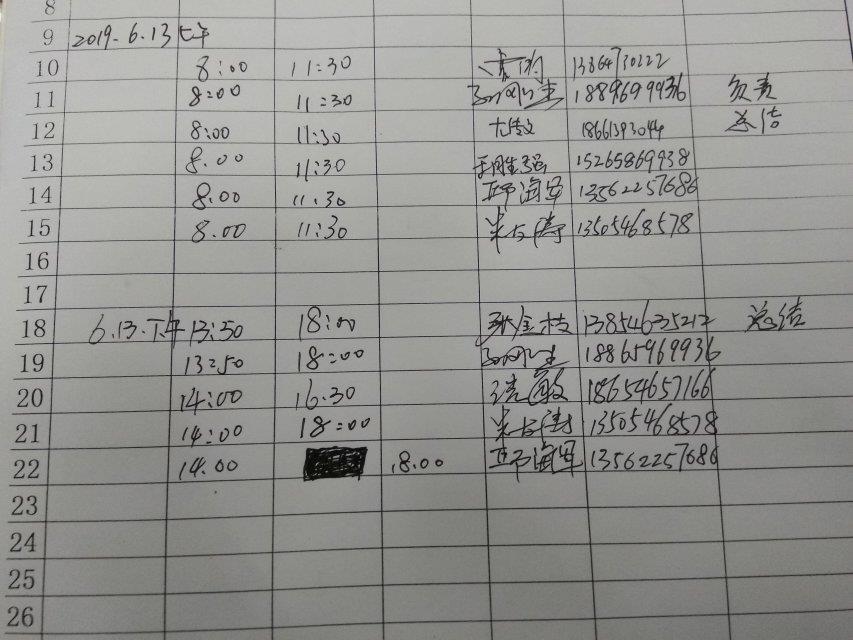 8
9 2019.6.13上午
10 8:00 11:30 13864730222
11 8:00 11:30 18896999936 负责
12 8:00 11:30 18661393044 总结
13 8.00 11:30 15265869938
14 8.00 11.30 海军 13562257686
15 8.00 11:30 米 13505468578
16
17
18 6.13.下午 13:50 18:00 孙金枝 13854635212 总结
19 13:50 18:00 18865969936
20 14:00 16.30 敏 18654657166
21 14:00 18:00 米 13505468578
22 14.00 18.00 海军 13562257686
23
24
25
26